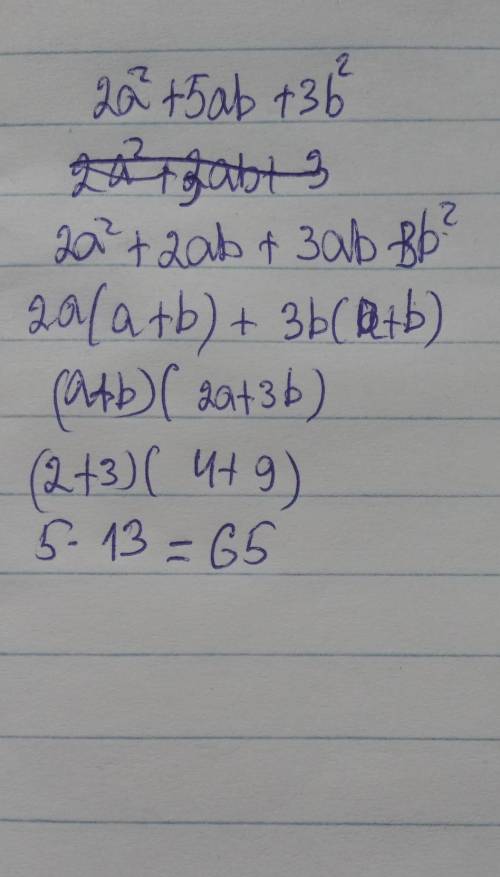 2a² + 5ab + 3b²
2a² + 2ab + 3ab + 3b²
2a(a+b) + 3b(a+b)
(a+b)( 2a+3b)
(2+3)( 4+ 9)
5 · 13 = 65